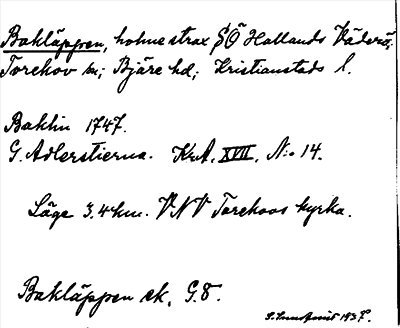 Bakläppen, holme strax SÖ Hallands Väderö,
Torekov sn; Bjäre hd; Kristianstads l.
Baklin 1747.
G. Adlerstierna. KrA, XVII, N:o 14.
Läge 3.4 km. VNV Torekovs kyrka.
Bakläppen ek. G.8.
1937.